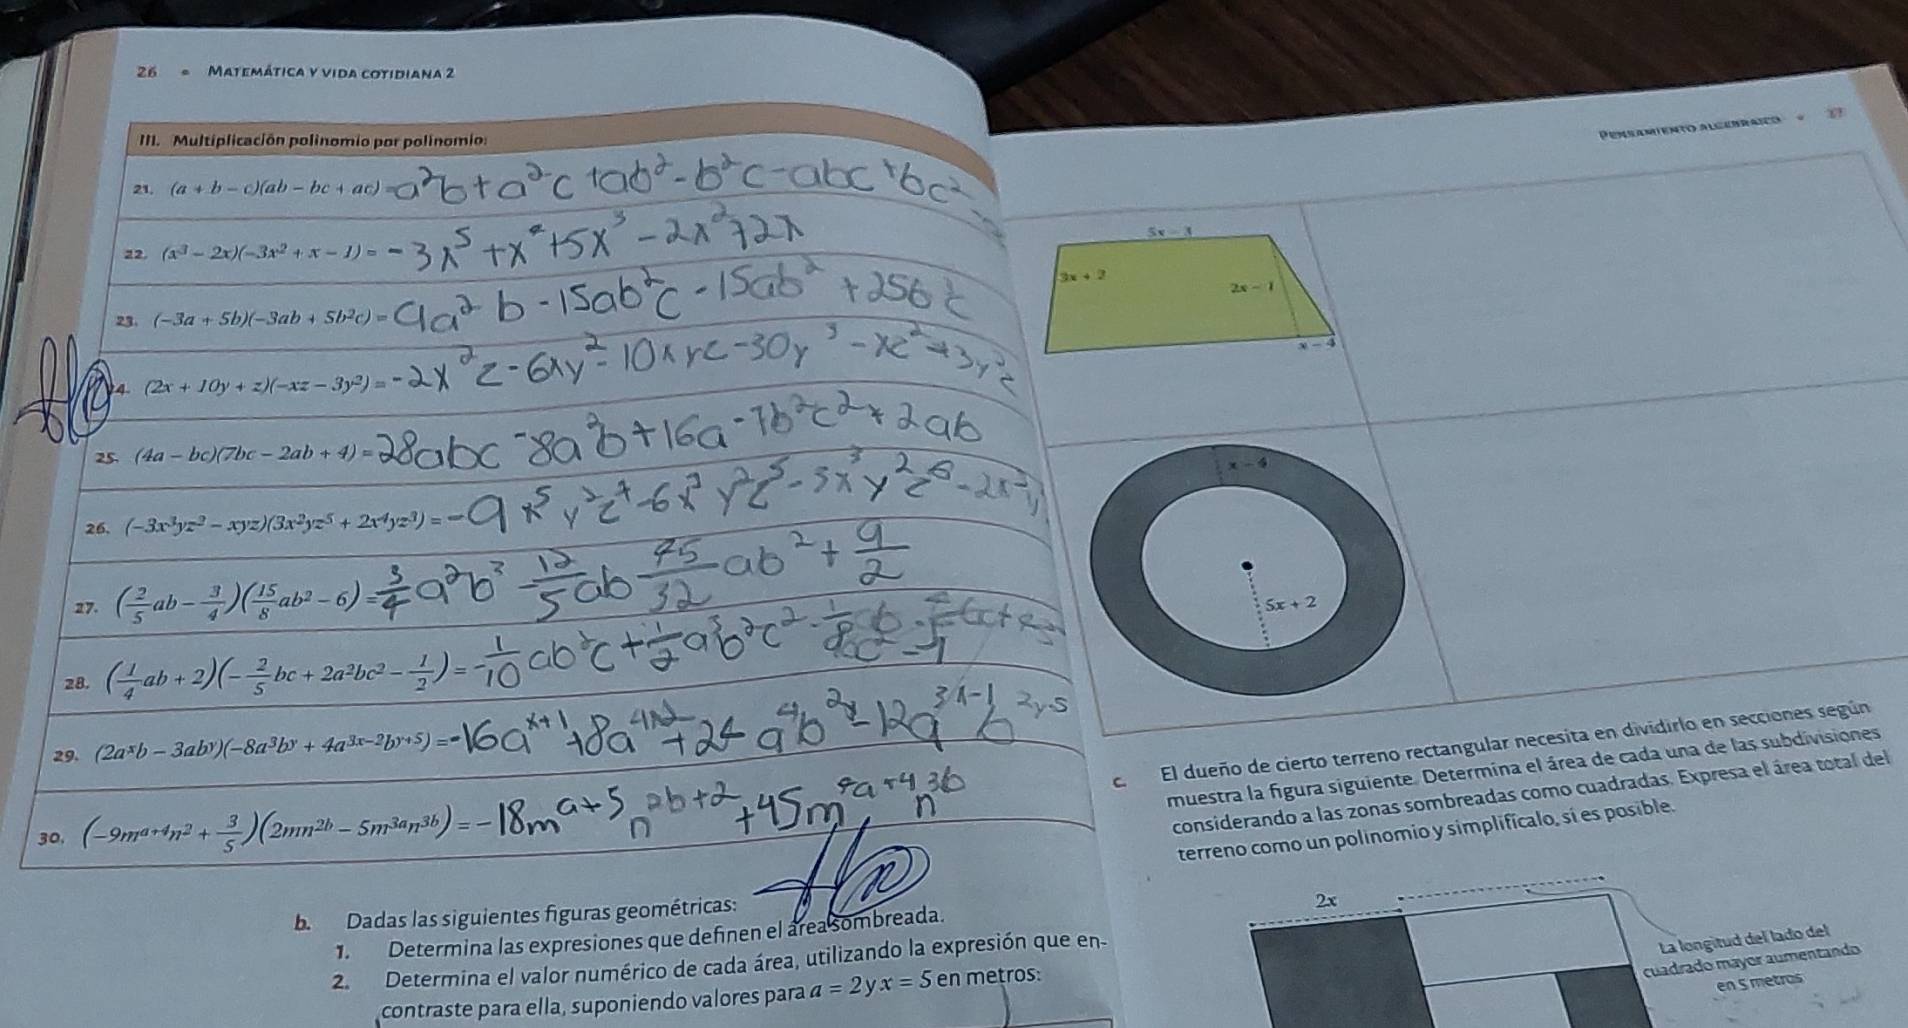 26 • MATEMÁTICA Y VIDA COTIDIANA 2
III. Multiplicación polinomio por polinomio:
21. (a + b − c)(ab − bc + ac) = a²b + a²c + ab² - b²c - abc + bc²
22. (x³ − 2x)(−3x² + x − 1) = -3x⁵ + x⁴ + 5x³ - 2x² + 2x
23. (−3a + 5b)(−3ab + 5b²c) = 9a²b - 15ab²c - 15ab² + 25b³c
24. (2x + 10y + z)(−xz − 3y²) = -2x²z - 6xy² - 10xyz - 30y³ - xz² + 3y²z
25. (4a − bc)(7bc − 2ab + 4) = 28abc - 8a²b + 16a - 7b²c² + 2ab
26. (−3x³yz² − xyz)(3x²yz⁵ + 2x⁴yz³) = -9x⁵y²z⁷ - 6x⁷y²z⁵ - 3x³y²z⁶ - 2x⁵y
27. (2/5 ab − 3/4)(15/8 ab² − 6) = 3/4 a²b³ - 12/5 ab - 45/32 ab² + 9/2
28. (1/4 ab + 2)(− 2/5 bc + 2a²bc² − 1/2) = - 1/10 ab²c + 1/2 a³b²c² - 1/8 ab
29. (2aˣb − 3abʸ)(−8a³bʸ + 4a³ˣ⁻²bʸ⁺⁵) = -16aˣ⁺¹ + 8a⁴ˣ⁻² + 24 a⁴b²ʸ - 12a³ˣ⁻¹b²ʸ·⁵
30. (−9mᵃ⁺⁴n² + 3/5)(2mn²ᵇ − 5m³ᵃn³ᵇ) = -18mᵃ⁺⁵n²ᵇ⁺² + 45m⁴ᵃ⁺⁴n³ᵇ
b. Dadas las siguientes figuras geométricas:
1. Determina las expresiones que definen el área sombreada.
2. Determina el valor numérico de cada área, utilizando la expresión que en-
contraste para ella, suponiendo valores para a = 2 y x = 5 en metros:
PENSAMIENTO ALGEBRAICO • 27
5x − 3
3x + 2
2x − 1
x − 4
x − 4
5x + 2
c. El dueño de cierto terreno rectangular necesita en dividirlo en secciones según
muestra la figura siguiente. Determina el área de cada una de las subdivisiones
considerando a las zonas sombreadas como cuadradas. Expresa el área total del
terreno como un polinomio y simplifícalo, si es posible.
2x
La longitud del lado del
cuadrado mayor aumentando
en 5 metros